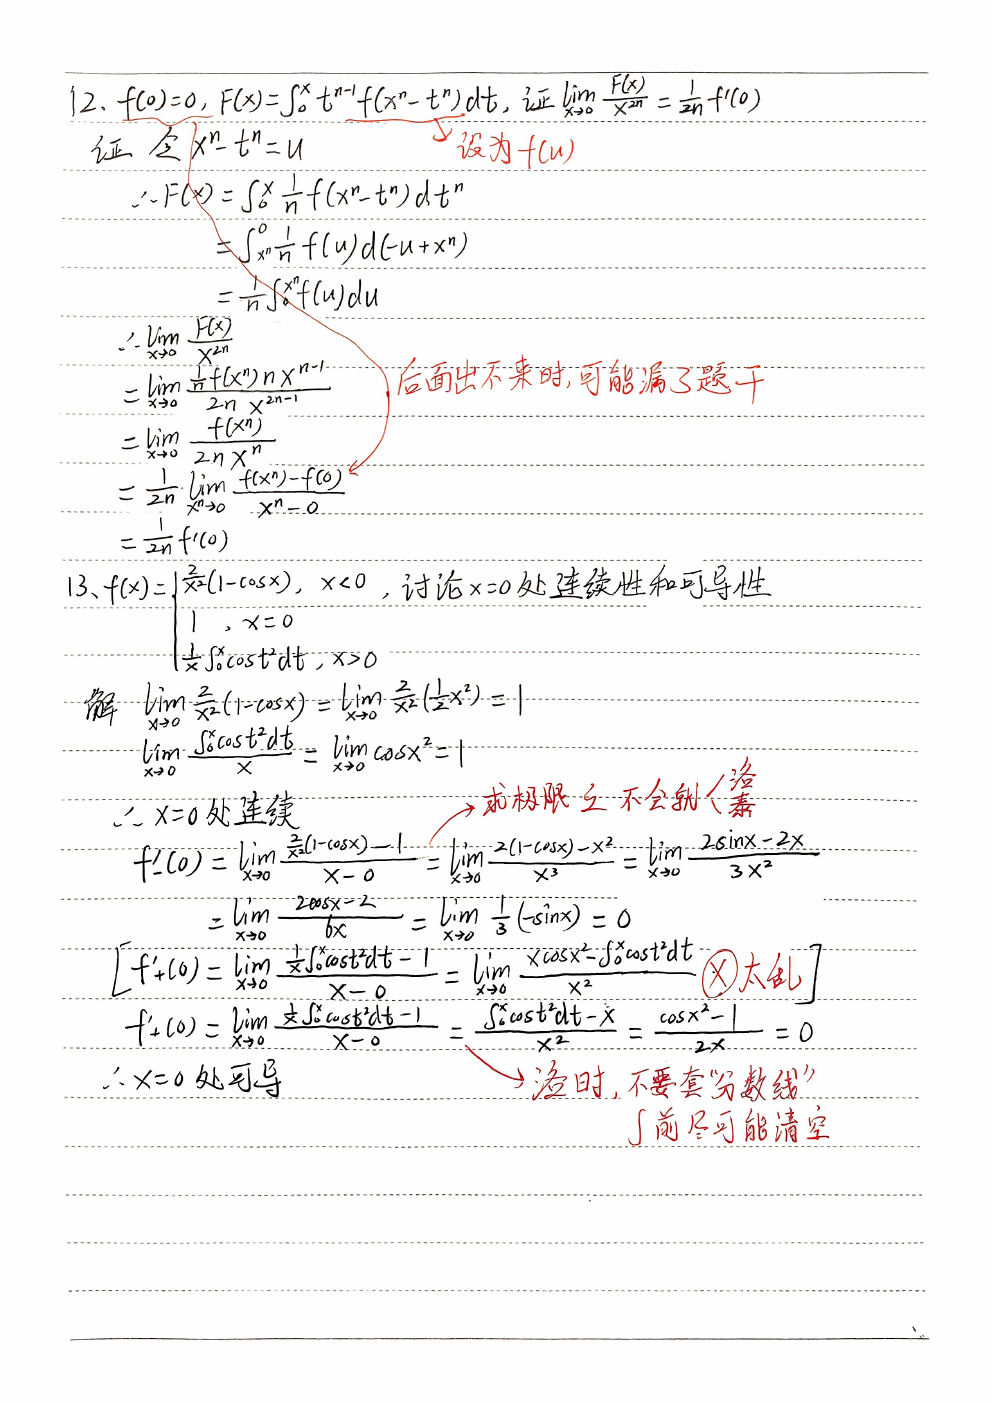 12、f(0)=0, F(x)=∫₀ˣ tⁿ⁻¹f(xⁿ-tⁿ)dt, 证 lim_{x→0} F(x)/x²ⁿ = 1/2n f'(0)
证 令 xⁿ-tⁿ=u
设为 f(u)
∴F(x)=∫₀ˣ 1/n f(xⁿ-tⁿ)dtⁿ
=∫_{xⁿ}^0 1/n f(u)d(-u+xⁿ)
=1/n ∫₀^{xⁿ} f(u)du
∴ lim_{x→0} F(x)/x²ⁿ
= lim_{x→0} (1/n f(xⁿ) n xⁿ⁻¹)/(2n x²ⁿ⁻¹)
后面出不来时,可能漏了题干
= lim_{x→0} f(xⁿ)/(2n xⁿ)
= 1/2n lim_{xⁿ→0} (f(xⁿ)-f(0))/(xⁿ-0)
= 1/2n f'(0)
13、f(x)= 2/x²(1-cosx), x<0 , 讨论x=0处连续性和可导性
1 , x=0
1/x ∫₀ˣcost²dt , x>0
解 lim_{x→0} 2/x²(1-cosx) = lim_{x→0} 2/x²(1/2 x²) = 1
lim_{x→0} (∫₀ˣcost²dt)/x = lim_{x→0} cosx² = 1
→求极限 不会就〈洛 泰
∴ x=0处连续
f'₋(0) = lim_{x→0} (2/x²(1-cosx)-1)/(x-0) = lim_{x→0} (2(1-cosx)-x²)/x³ = lim_{x→0} (2sinx-2x)/3x²
= lim_{x→0} (2cosx-2)/6x = lim_{x→0} 1/3(-sinx) = 0
[f'₊(0) = lim_{x→0} (1/x ∫₀ˣcost²dt-1)/(x-0) = lim_{x→0} (xcosx²-∫₀ˣcost²dt)/x² ⓧ太乱]
f'₊(0) = lim_{x→0} (1/x ∫₀ˣcost²dt-1)/(x-0) = (∫₀ˣcost²dt-x)/x² = (cosx²-1)/2x = 0
∴ x=0处可导
→洛时,不要套“分数线”
∫前尽可能清空